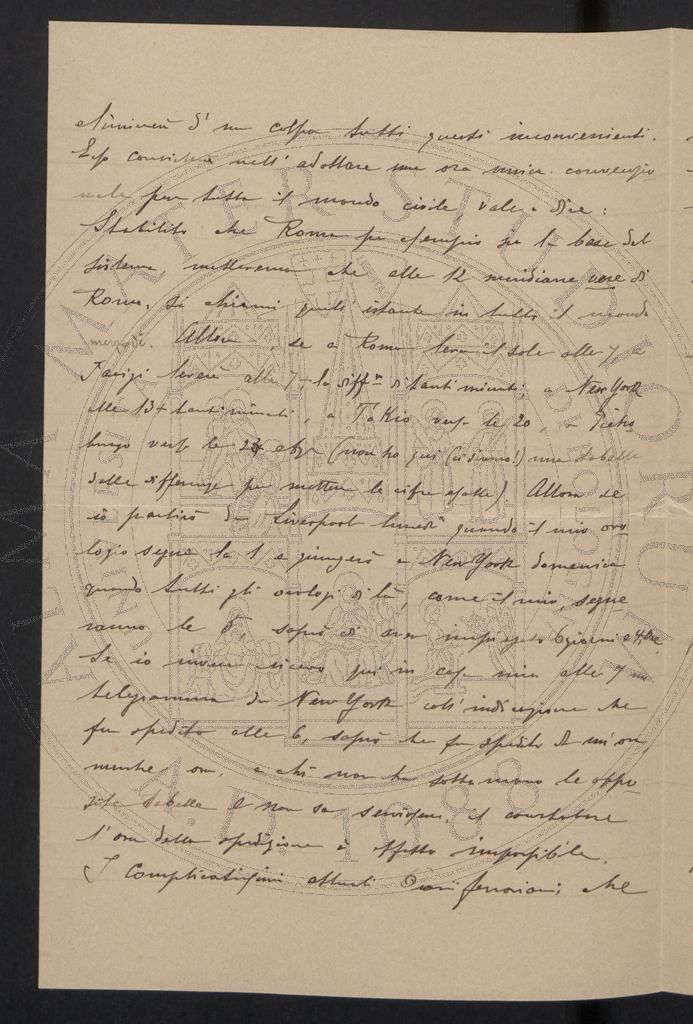 eliminerà d'un colpo tutti questi inconvenienti.
Esso consiste nell'adottare una ora unica convenzio
nale per tutto il mondo civile vale a dire:
Stabilito che Roma per esempio sia la base del
sistema, metteremo che alle 12 meridiane vere di
Roma, si chiami quell'istante in tutto il mondo
mezzodì. Allora, se a Roma leva il sole alle 7 a
Parigi leverà alle 7 + la diffza di tanti minuti, a New York
alle 13 + tanti minuti, a Tokio verso le 20, a Pietro
burgo verso le (non ho qui una tabella
delle differenze per mettere le cifre esatte). Allora se
io partirò da Liverpool lunedì quando il mio oro
logio segna la 1 e giungerò a New York domenica
quando tutti gli orologi di là, come il mio, segne
ranno le 5, saprò di aver impiegato 6 giorni e 4 ore
Se io invece ricevo qui in casa mia alle 7 un
telegramma da New York coll'indicazione che
fu spedito alle 6, saprò che fu spedito da un'ora,
mentre ora, a chi non ha sottomano le appo
site tabelle e non sa servirsene, il constatare
l'ora della spedizione è affatto impossibile.
I complicatissimi attuali Orari ferroviari, che
ALMA MATER STUDIORUM
A.D. 1088